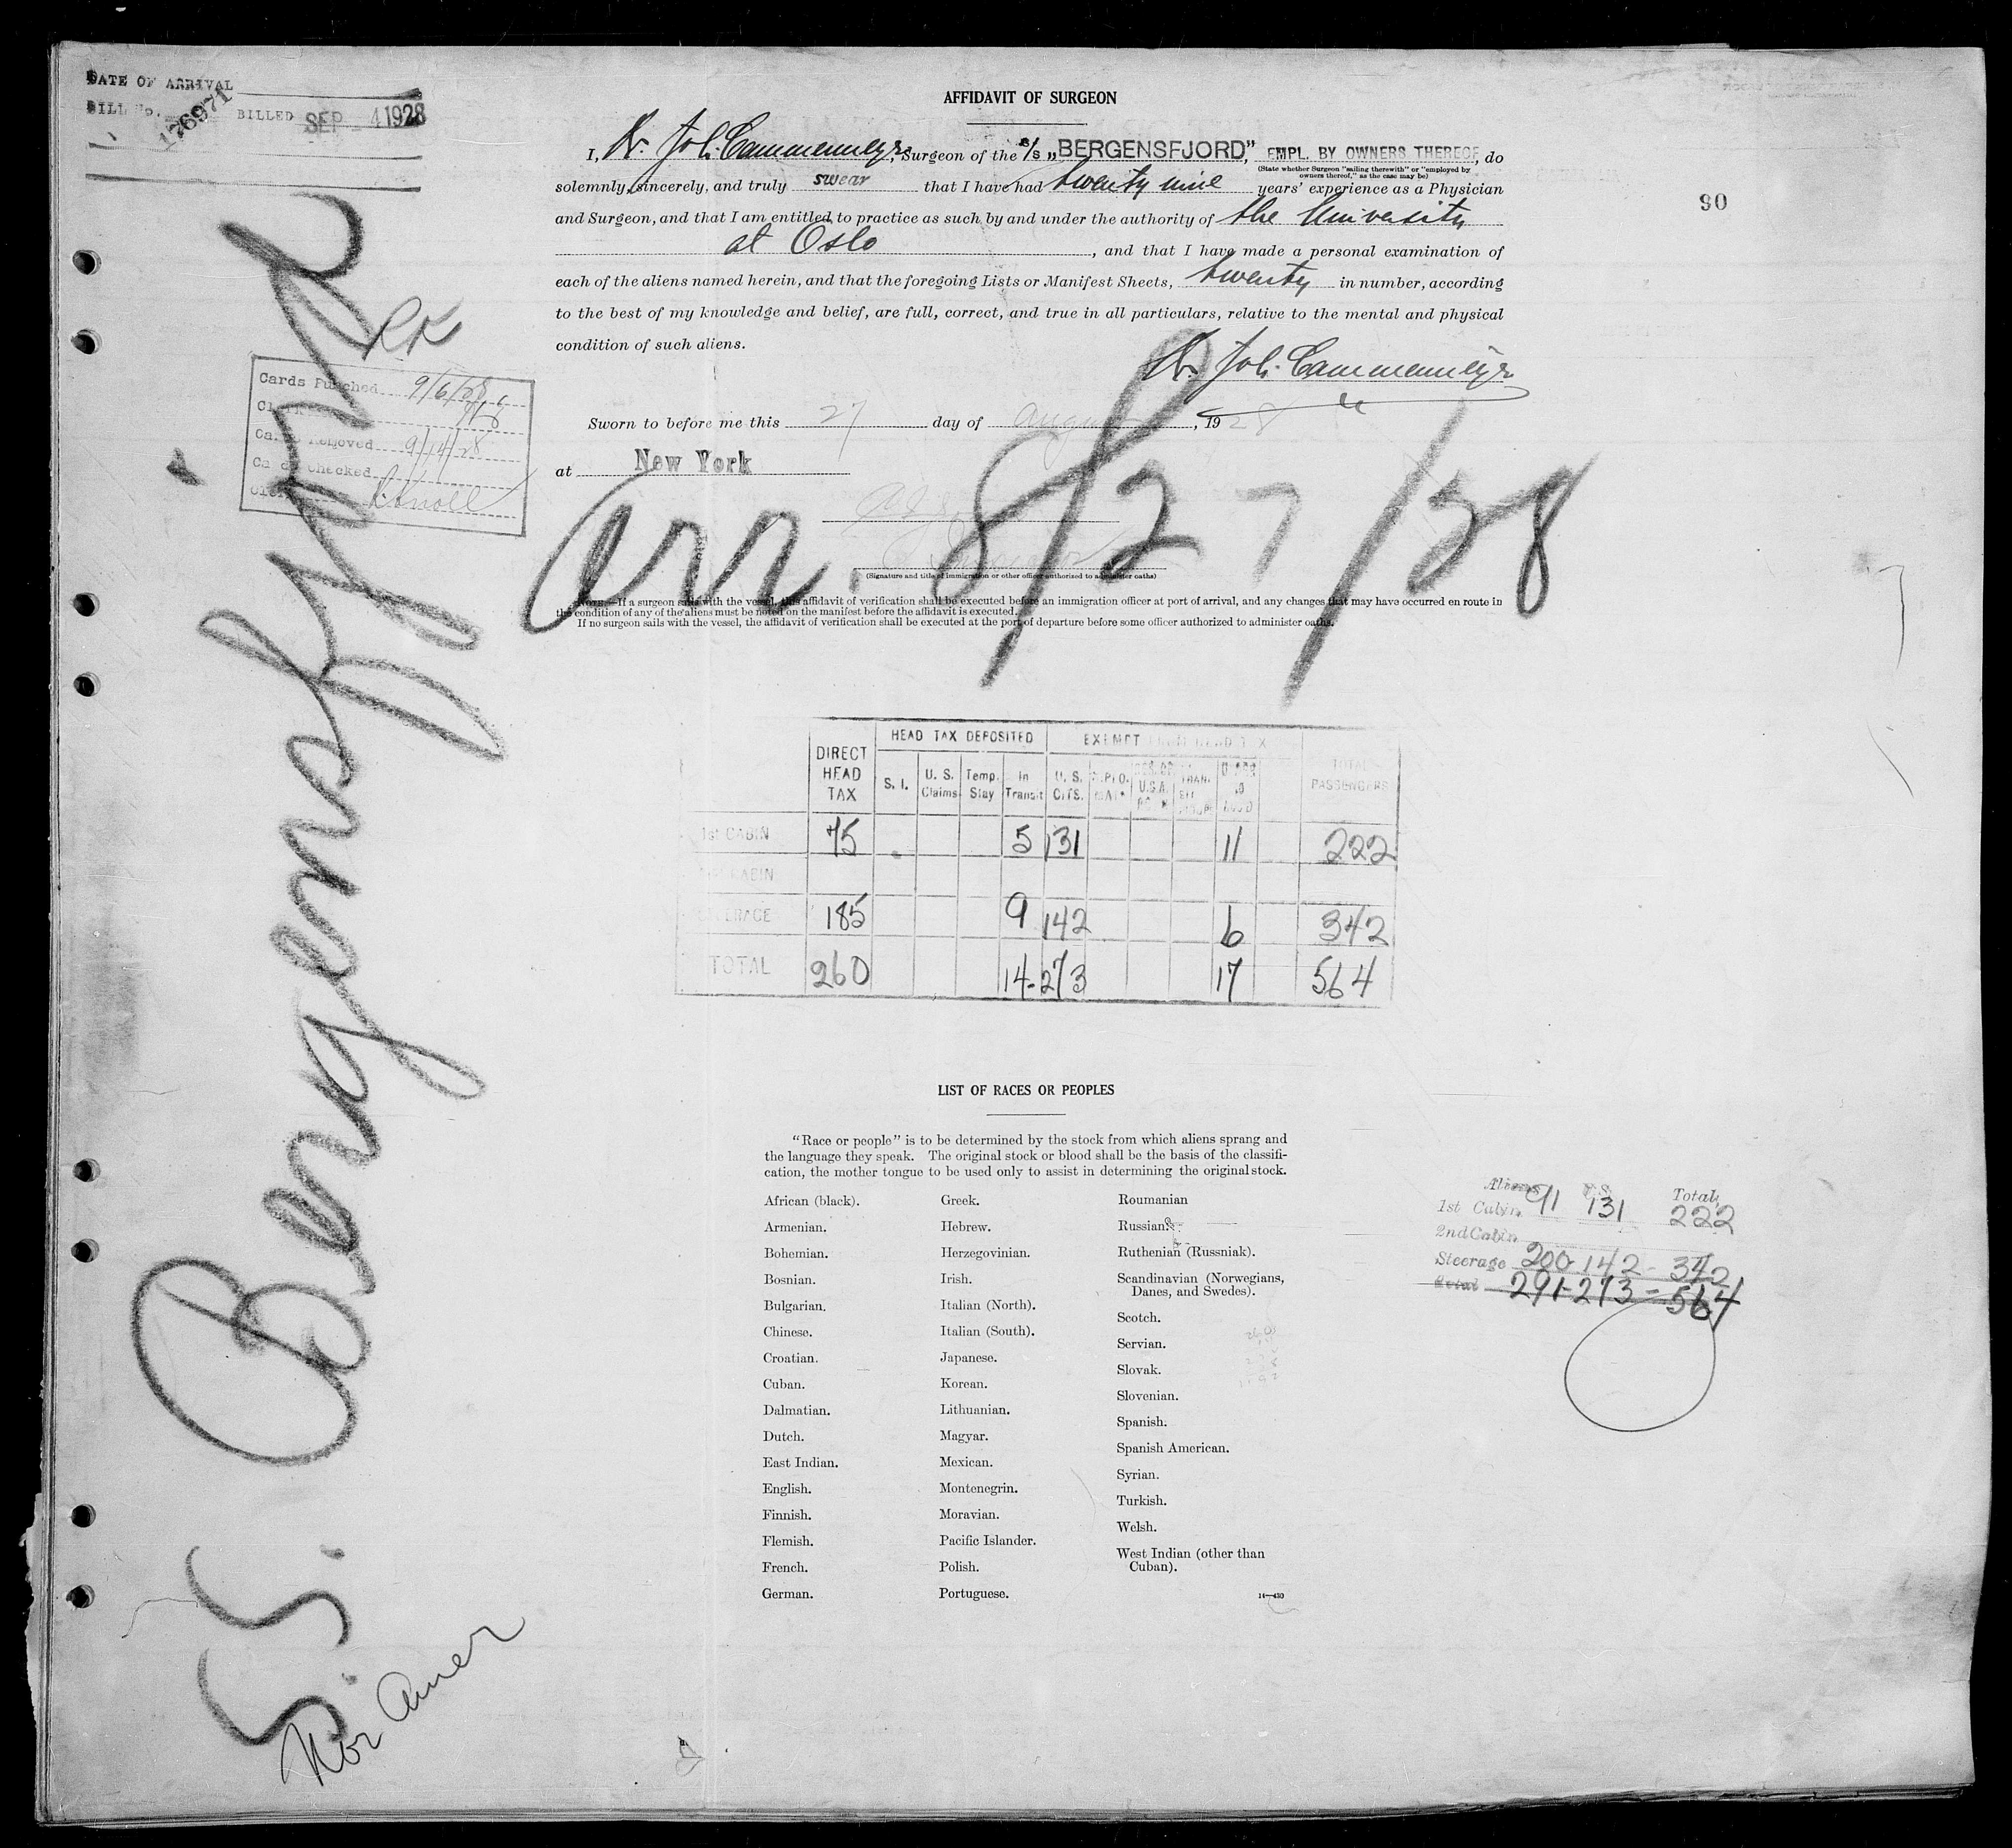 DATE OF ARRIVAL
BILL No. 176971 BILLED SEP 4 1928
AFFIDAVIT OF SURGEON
I, Dr. Joh. Cammermeyer, Surgeon of the S/S „BERGENSFJORD”, EMPL. BY OWNERS THEREOF, do
(State whether Surgeon "sailing therewith" or "employed by
owners thereof," as the case may be)
solemnly, sincerely, and truly swear that I have had twenty nine years' experience as a Physician
and Surgeon, and that I am entitled to practice as such by and under the authority of the University
at Oslo, and that I have made a personal examination of
each of the aliens named herein, and that the foregoing Lists or Manifest Sheets, twenty in number, according
to the best of my knowledge and belief, are full, correct, and true in all particulars, relative to the mental and physical
condition of such aliens.
90
Dr. Joh. Cammermeyer
Sworn to before me this 27 day of August, 1928
at New York
(Signature and title of immigration or other officer authorized to administer oaths)
arr. 8/27/28
NOTE.—If a surgeon sails with the vessel, this affidavit of verification shall be executed before an immigration officer at port of arrival, and any changes that may have occurred en route in
the condition of any of the aliens must be noted on the manifest before the affidavit is executed.
If no surgeon sails with the vessel, the affidavit of verification shall be executed at the port of departure before some officer authorized to administer oaths.
RK
Cards Punched 9/6/28
Clerk
Cards Removed 9/14/28
Cards Checked
Clerk
S.S. Bergensfjord
Nor Amer
HEAD TAX DEPOSITED EXEMPT FROM HEAD TAX
DIRECT HEAD TAX S. I. U. S. Claims Temp. Stay In Transit U. S. CITS. DIPLO. TOTAL PASSENGERS
1st CABIN 75 5 131 11 222
2nd CABIN
STEERAGE 185 9 142 6 342
TOTAL 260 14-273 17 564
LIST OF RACES OR PEOPLES
"Race or people" is to be determined by the stock from which aliens sprang and
the language they speak. The original stock or blood shall be the basis of the classifi-
cation, the mother tongue to be used only to assist in determining the original stock.
African (black).
Armenian.
Bohemian.
Bosnian.
Bulgarian.
Chinese.
Croatian.
Cuban.
Dalmatian.
Dutch.
East Indian.
English.
Finnish.
Flemish.
French.
German.
Greek.
Hebrew.
Herzegovinian.
Irish.
Italian (North).
Italian (South).
Japanese.
Korean.
Lithuanian.
Magyar.
Mexican.
Montenegrin.
Moravian.
Pacific Islander.
Polish.
Portuguese.
Roumanian
Russian.
Ruthenian (Russniak).
Scandinavian (Norwegians,
Danes, and Swedes).
Scotch.
Servian.
Slovak.
Slovenian.
Spanish.
Spanish American.
Syrian.
Turkish.
Welsh.
West Indian (other than
Cuban).
14—430
Aliens U.S. Total
1st Cabin 91 131 222
2nd Cabin
Steerage 200-142-342
Total 291-273-564